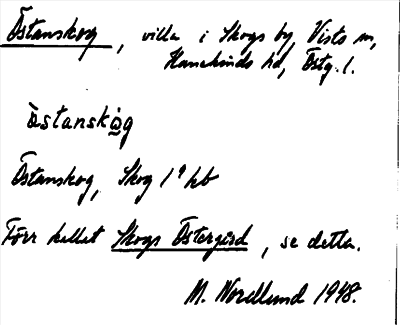 Östanskog, villa i Skogs by, Vists sn,
Hanekinds hd, Östg. l.
östanskög
Östanskog, Skog 1⁹ kb
Förr kallat Skogs Östergård, se detta.
M. Nordlund 1948.